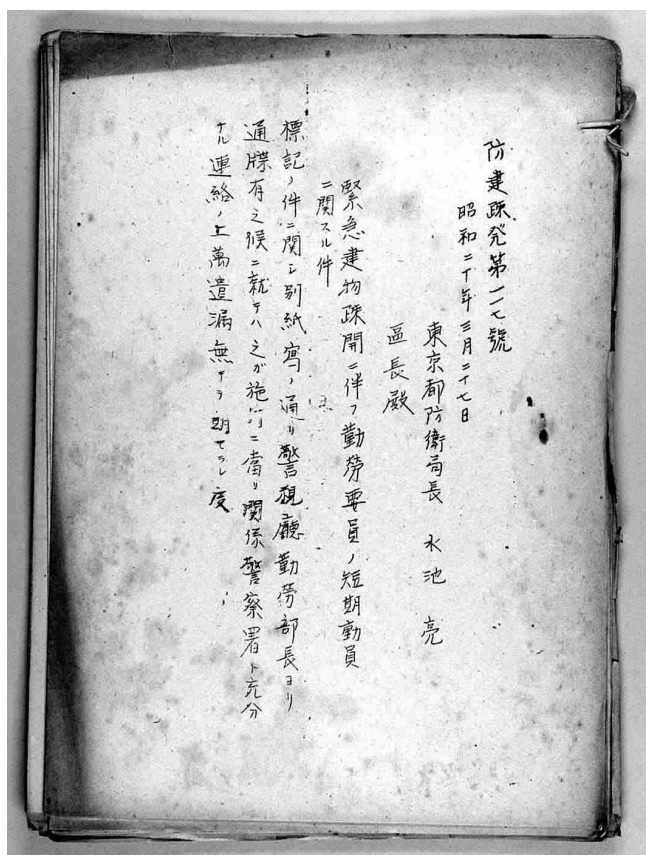 防建疎発第一一七號
昭和二十年三月二十七日
東京都防衛局長 水池亮
區長殿
緊急建物疎開ニ伴フ勤労要員ノ短期動員
ニ関スル件
標記ノ件ニ関シ別紙寫ノ通リ警視廳勤労部長ヨリ
通牒有之候ニ就テハ之が施行ニ當リ関係警察署ト充分
ナル連絡ノ上萬遺漏無カラ期セラレ度